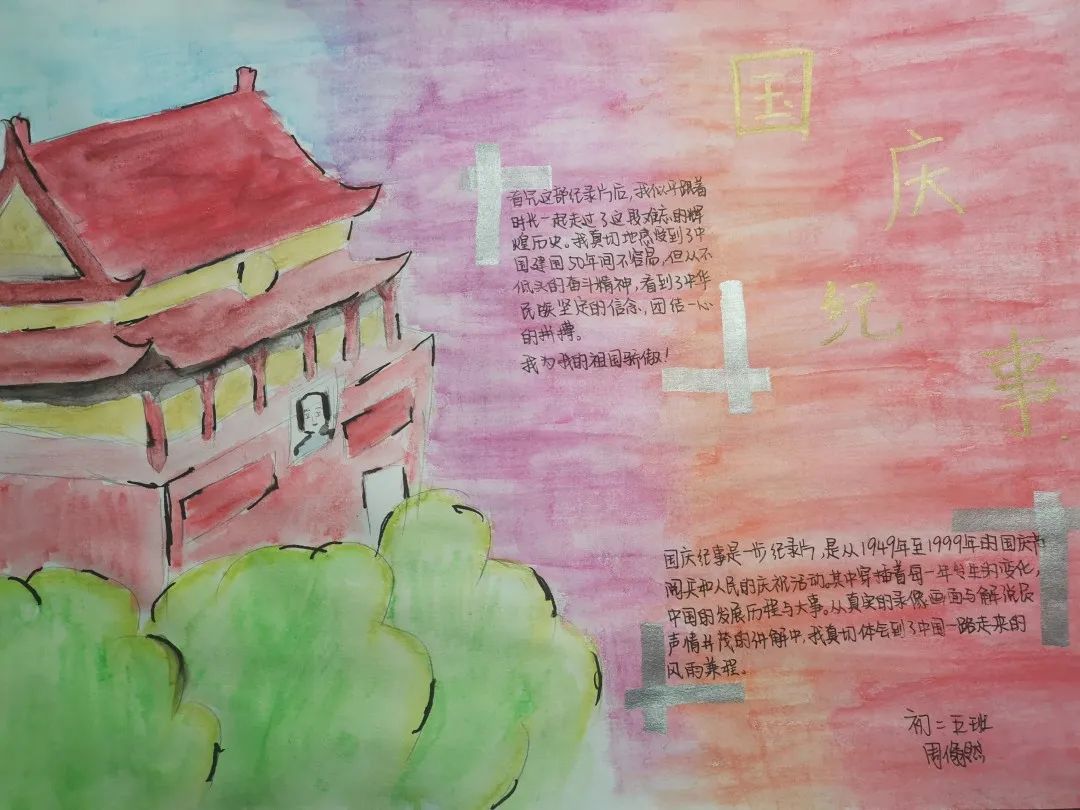 国庆纪事
看完这部纪录片后，我似乎跟着
时光一起走过了这段难忘的辉
煌历史。我真切地感受到了中
国建国50年间不容易，但从不
低头的奋斗精神，看到了中华
民族坚定的信念，团结一心
的拼搏。
我为我的祖国骄傲！
国庆纪事是一步纪录片，是从1949年至1999年的国庆节
阅兵和人民的庆祝活动，其中穿插着每一年发生的变化，
中国的发展历程与大事。从真实的录像画面与解说员
声情并茂的讲解中，我真切体会到了中国一路走来的
风雨兼程。
初二五班
周